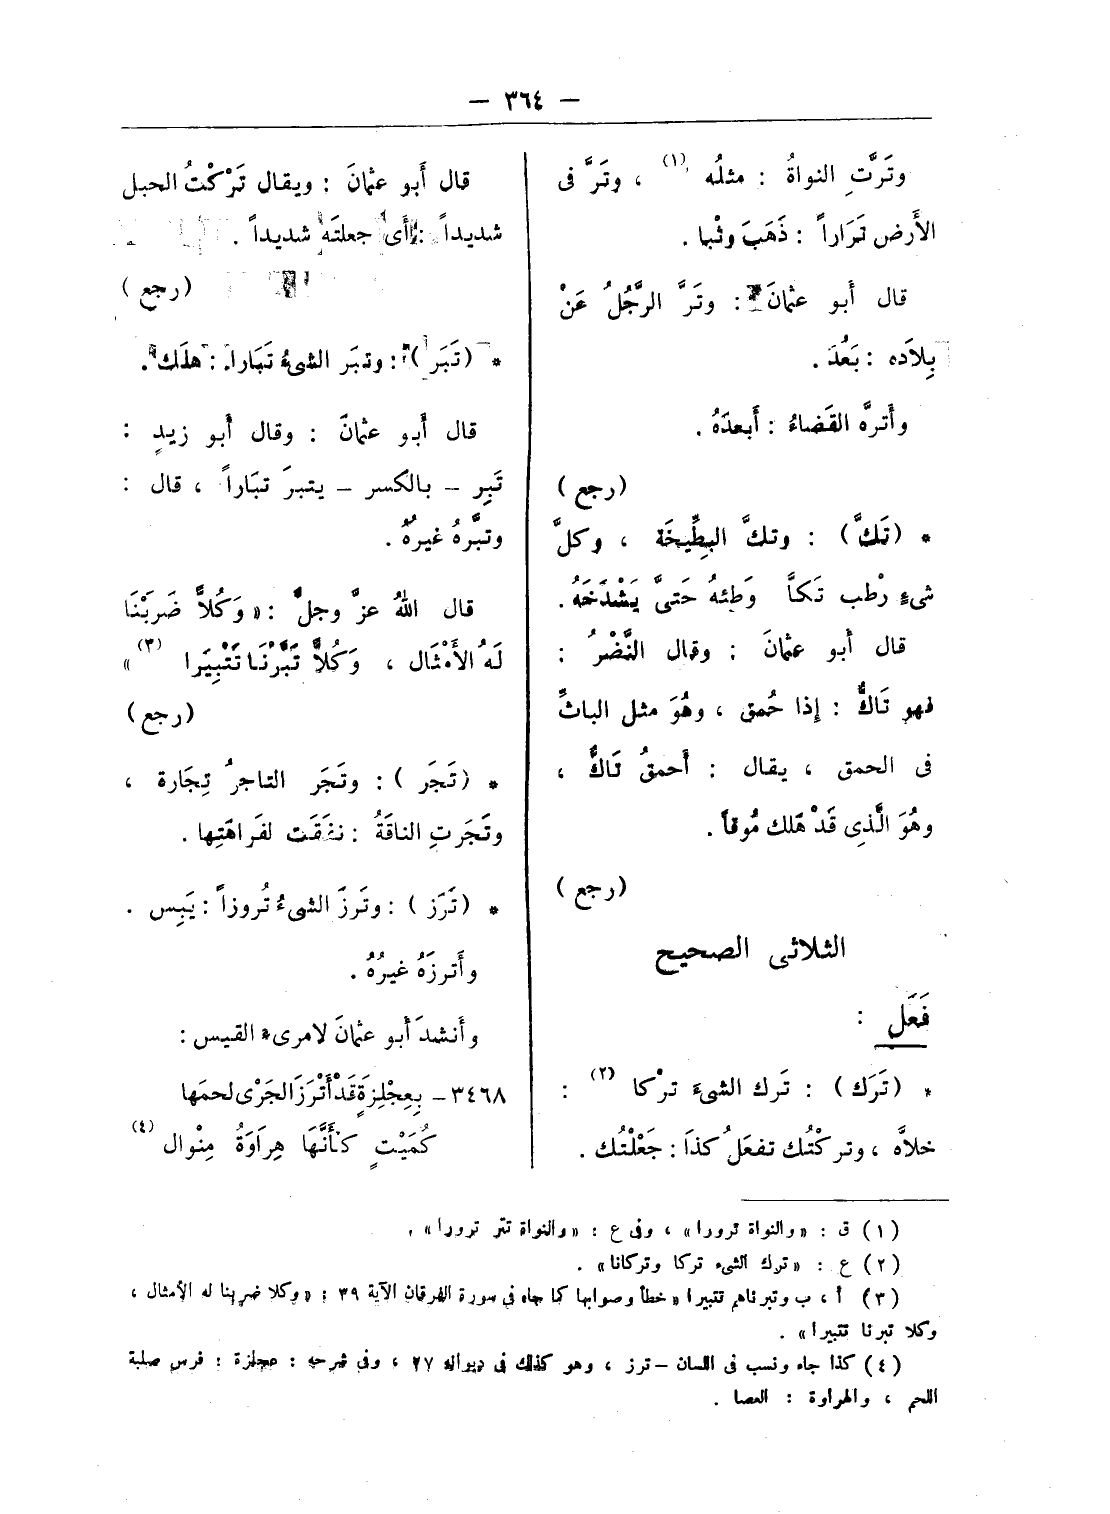 — ٣٦٤ —
وتَرَّتِ النواةُ : مثلُه (١) ، وتَرَّ فى
الأَرض تَرَاراً : ذَهَبَ وثْبا .
قال أَبو عثمانَ : وتَرَّ الرَّجُلُ عَنْ
بِلاَده : بَعُدَ .
وأَترَّه القَضاءُ : أَبعدَهُ .
(رجع)
* (تَكَّ) : وتكَّ البِطِّيخَة ، وكلَّ
شىءٍ رْطب تَكاًّ وَطِئهُ حَتىَّ يَشْدَخَهُ .
قال أَبو عثمانَ : وقال النَّضْرُ :
فهو تَاكٌّ : إذا حُمق ، وهُوَ مثل الباتِّ
فى الحمق ، يقال : أَحمقُ تَاكٌّ ،
وهُوَ الَّذِى قَدْ هَلك مُوقاً .
(رجع)
الثلاثى الصحيح
فَعَل :
* (تَرَك) : تَرك الشىءَ ترْكا (٢) :
خلاَّه ، وتركْتُك تفعَلُ كذَا : جَعَلْتُك .
قال أَبو عثمانَ : ويقال تَرْكْتُ الحبل
شديداً : أَى جعلتَه شديداً .
(رجع)
* (تَبَر) : وتبَر الشىءُ تَبَاراً : هلَك .
قال أَبو عثمانَ : وقال أَبو زيدٍ :
تَبِر – بالكسر – يتبرَ تبَاراً ، قال :
وتبَّرهُ غيرهُ .
قال اللهُ عزَّ وجلَّ : « وَكُلاًّ ضَرَبْنَا
لَهُ الأَمْثَال ، وَكُلاًّ تَبَّرْنَا تَتْبِيَرا (٣) »
(رجع)
* (تَجَر) : وتَجَر التاجرُ تِجَارة ،
وتَجَرتِ الناقَةُ : نفَقَت لفَراهَتِها .
* (تَرَز) : وتَرزَ الشىءُ تُروزاً : يَبِس .
وأَترزَهُ غيرُهُ .
وأَنشدَ أَبو عثمانَ لامرىء القيس :
٣٤٦٨ – بِعِجْلِزةٍ قَدْ أَتْرَزَ الجَرْى لحمَها
كُمَيْتٍ كأَنَّهَا هِرَاوَةُ مِنْوال (٤)
(١) ق : «والنواة ترورا» ، وفى ع : «والنواة تتر ترورا» .
(٢) ع : «ترك الشىء تركا وتركانا» .
(٣) أ ، ب وتبرناهم تتبيرا «خطأ وصوابها كما جاء فى سورة الفرقان الآية ٣٩ : «وكلا ضربنا له الأمثال ،
وكلا تبرنا تتبيرا» .
(٤) كذا جاء ونسب فى اللسان – ترز ، وهو كذلك فى ديوانه ٢٧ ، وفى شرحه : عجلزة : فرس صلبة
اللحم ، والهراوة : العصا .